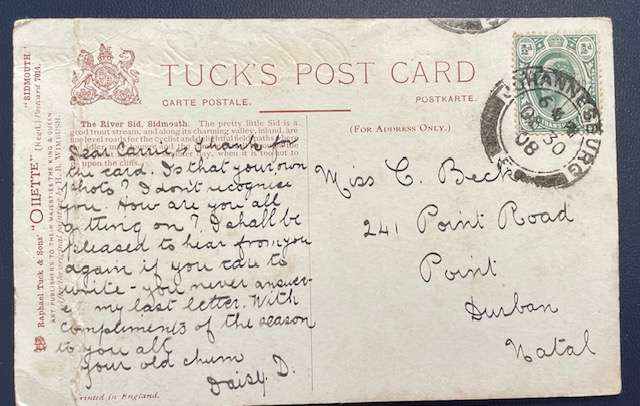 TUCK'S POST CARD
CARTE POSTALE.
POSTKARTE.
(FOR ADDRESS ONLY.)
The River Sid, Sidmouth. The pretty little Sid is a
good trout stream, and along its charming valley, inland, are
upon the cliffs.
Dear Carrie, Thanks for
the card. Is that your own
photo? I don't recognise
you. How are you all
getting on? I shall be
pleased to hear from you
again if you care to
write - you never answer-
ed my last letter. With
compliments of the season
to you all
your old chum
Daisy D.
Printed in England.
Miss C. Beck
241 Point Road
Point
Durban
Natal
JOHANNESBURG
30
08
Raphael Tuck & Sons' "OILETTE" (Regd.) Postcard 7014. "SIDMOUTH."
ART PUBLISHERS TO THEIR MAJESTIES THE KING & QUEEN.